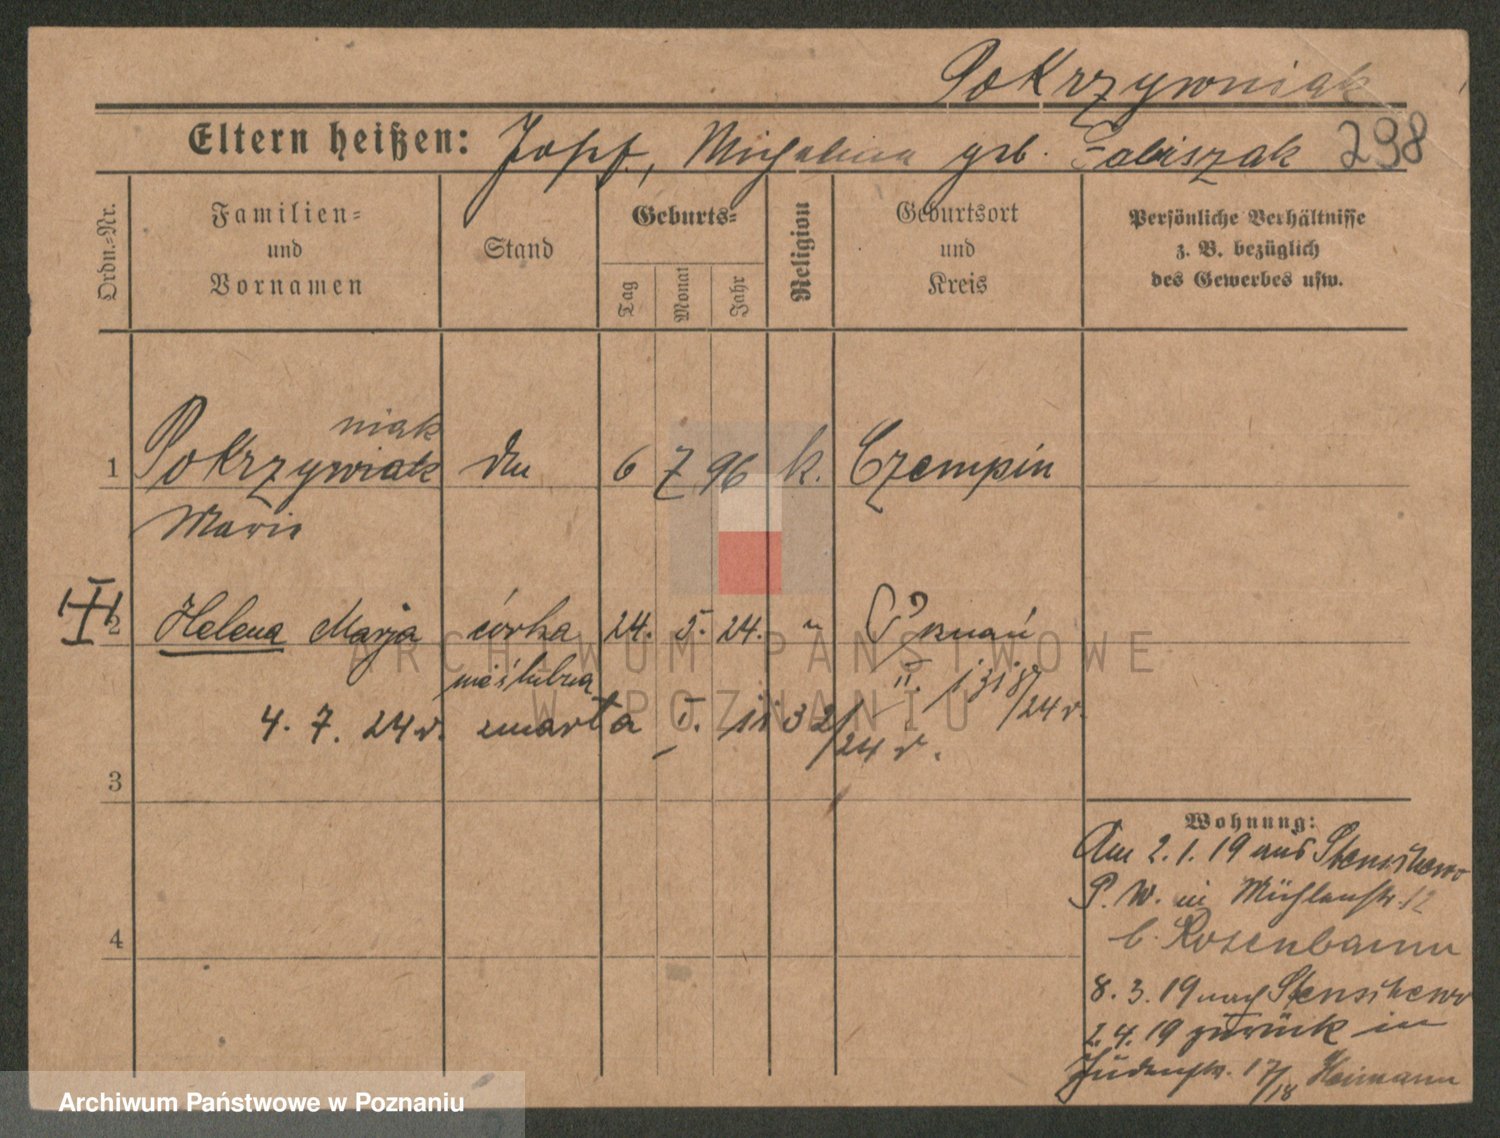 Pokrzywniak
Eltern heißen: Josef, Michalina geb. Fabiszak 298
Ordn.-Nr.
Familien-
und
Vornamen
Stand
Geburts-
Tag
Monat
Jahr
Religion
Geburtsort
und
Kreis
Persönliche Verhältnisse
z. B. bezüglich
des Gewerbes usw.
niak
1 Pokrzywiak 6 7 96 k. Czempin
Marie
2 Helena Marja córka 24. 5. 24. " Poznań
nieślubna II. 1318/24 r.
4. 7. 24 r. zmarła I. 1132/24 r.
3
4
Wohnung:
Am 2.1.19 aus Stenschewo
P. W. in Mühlenstr. 12
b. Rosenbaum
8.3.19 nach Stenschewo
2.4.19 zurück in
Judenstr. 17/18 Heimann
ARCHIWUM PAŃSTWOWE
W POZNANIU
Archiwum Państwowe w Poznaniu